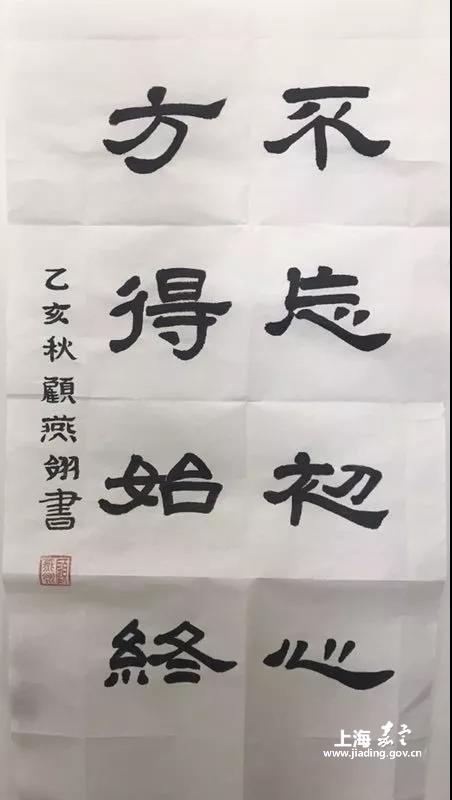 不忘初心
方得始终
乙亥秋顧燕翊書
上海嘉定
www.jiading.gov.cn